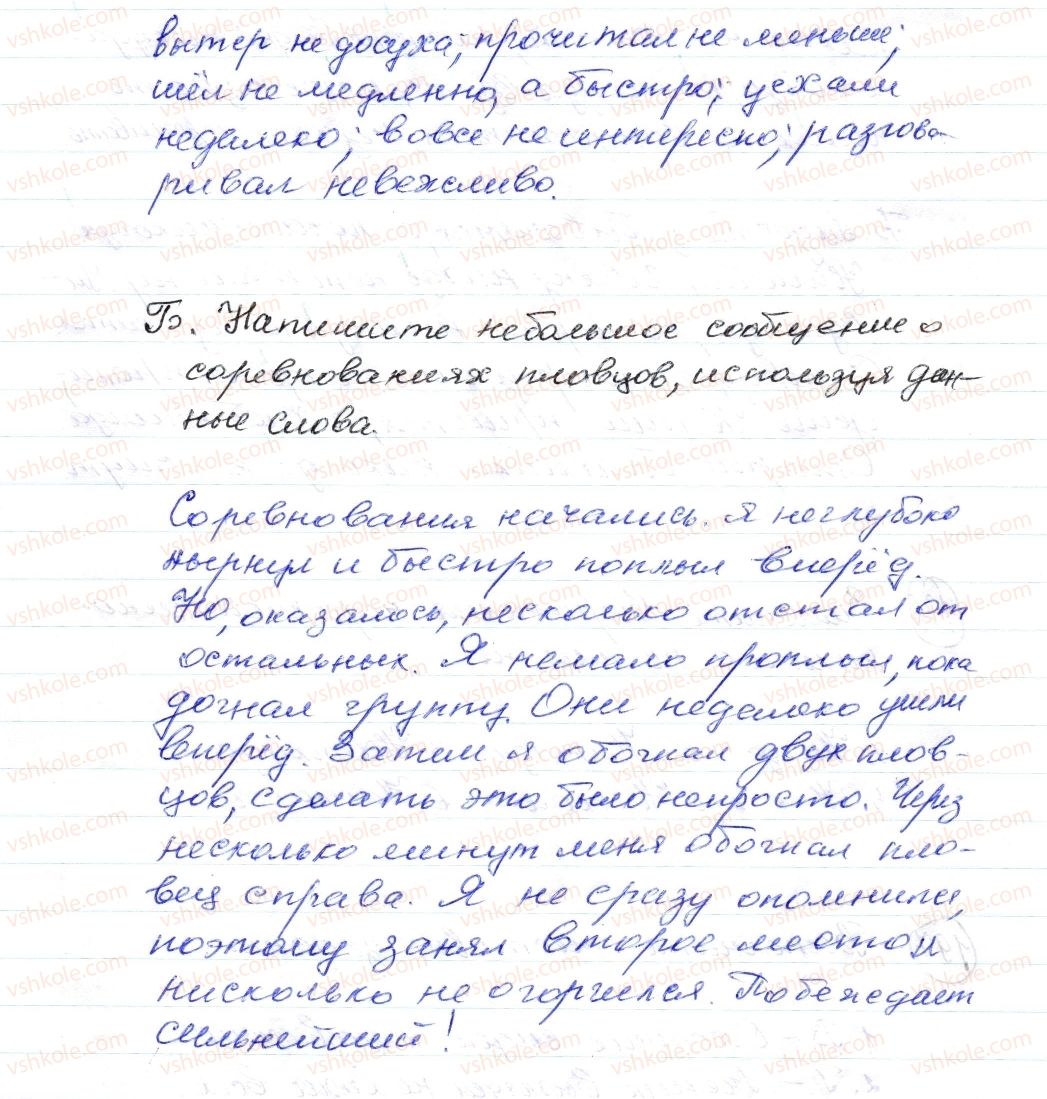 вытер не досуха; прочитал не меньше;
шёл не медленно, а быстро; уехали
недалеко; вовсе не интересно; разгова-
ривал невежливо.
Б. Напишите небольшое сообщение о
соревнованиях пловцов, используя дан-
ные слова.
Соревнования начались. Я неглубоко
нырнул и быстро поплыл вперёд.
Но, оказалось, несколько отстал от
остальных. Я немало проплыл, пока
догнал группу. Они недалеко ушли
вперёд. Затем я обогнал двух плов-
цов, сделать это было непросто. Через
несколько минут меня обогнал пло-
вец справа. Я не сразу опомнился,
поэтому занял второе место и
нисколько не огорчился. Побеждает
сильнейший!